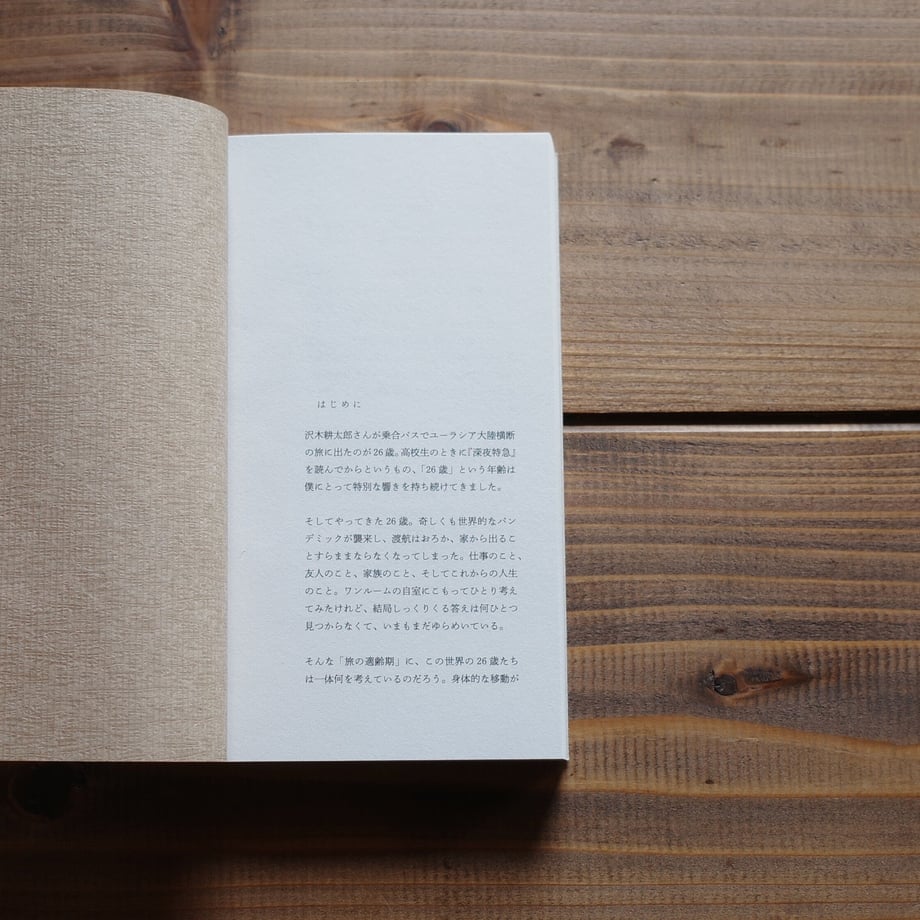 はじめに
沢木耕太郎さんが乗合バスでユーラシア大陸横断
の旅に出たのが26歳。高校生のときに『深夜特急』
を読んでからというもの、「26歳」という年齢は
僕にとって特別な響きを持ち続けてきました。
そしてやってきた26歳。奇しくも世界的なパン
デミックが襲来し、渡航はおろか、家から出るこ
とすらままならなくなってしまった。仕事のこと、
友人のこと、家族のこと、そしてこれからの人生
のこと。ワンルームの自室にこもってひとり考え
てみたけれど、結局しっくりくる答えは何ひとつ
見つからなくて、いまもまだゆらめいている。
そんな「旅の適齢期」に、この世界の26歳たち
は一体何を考えているのだろう。身体的な移動が